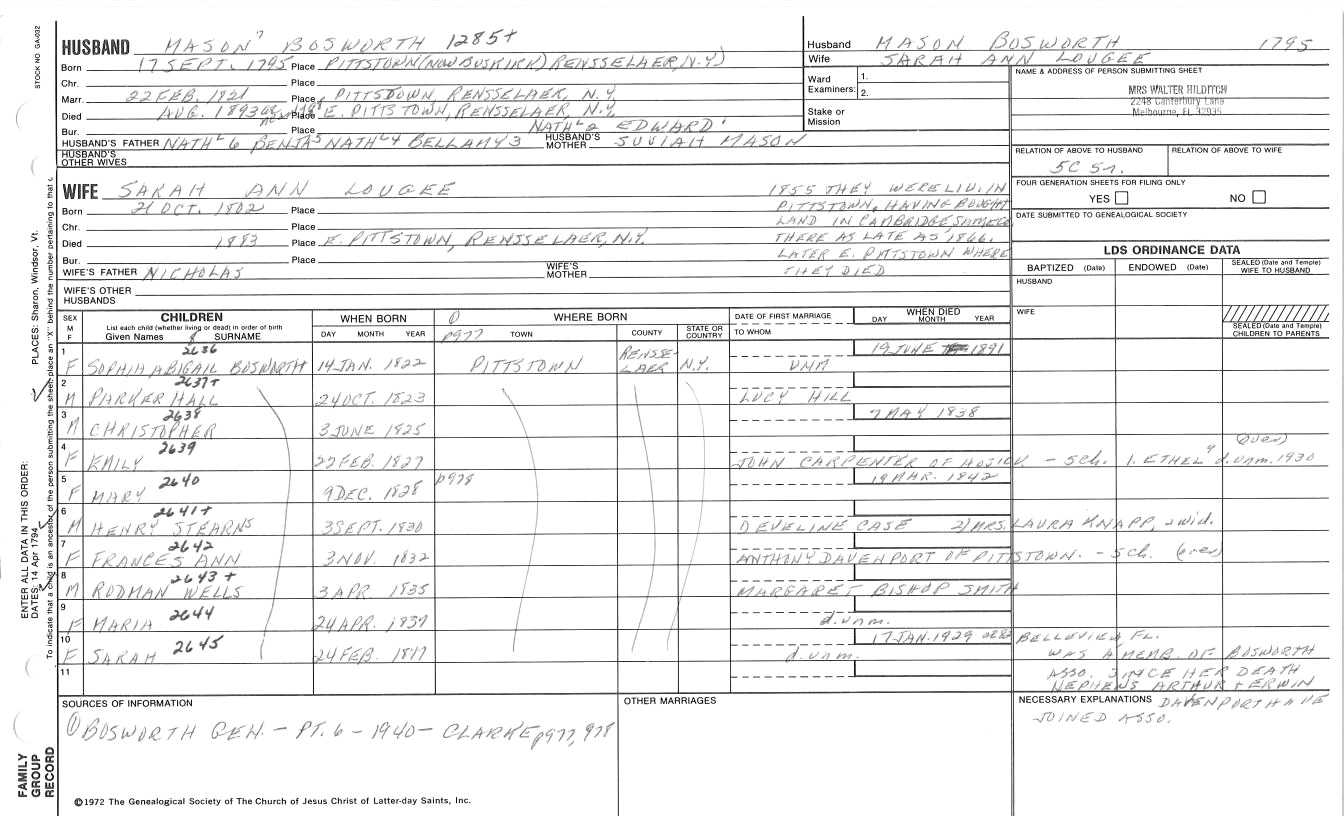 STOCK NO GA-002
HUSBAND MASON⁷ BOSWORTH 1285+
Born 17 SEPT. 1795 Place PITTSTOWN (NOW BUSKIRK) RENSSELAER, N.Y.)
Chr. Place
Marr. 22 FEB. 1821 Place PITTSTOWN, RENSSELAER, N.Y.
Died AUG. 1893 Place E. PITTSTOWN, RENSSELAER, N.Y.
Bur. Place NATHL 2 EDWARD¹
HUSBAND'S FATHER NATHL 6 BENJA5 NATHL4 BELLAMY 3 HUSBAND'S MOTHER MASON
HUSBAND'S OTHER WIVES
Husband MASON BOSWORTH 1795
Wife SARAH ANN LOUGEE
Ward Examiners: 1.
2.
Stake or Mission
NAME & ADDRESS OF PERSON SUBMITTING SHEET
MRS WALTER HILDITCH
2248 Canterbury Lane
Melbourne, FL 32935
RELATION OF ABOVE TO HUSBAND RELATION OF ABOVE TO WIFE
5C 5r.
FOUR GENERATION SHEETS FOR FILING ONLY
YES NO
DATE SUBMITTED TO GENEALOGICAL SOCIETY
WIFE SARAH ANN LOUGEE
Born 21 OCT. 1802 Place
Chr. Place
Died 1883 Place E. PITTSTOWN, RENSSELAER, N.Y.
Bur. Place
WIFE'S FATHER NICHOLAS WIFE'S MOTHER
WIFE'S OTHER HUSBANDS
1855 THEY WERE LIV. IN
PITTSTOWN, HAVING BOUGHT
LAND IN CAMBRIDGE, SAME CO.
THERE AS LATE AS 1866.
LATER E. PITTSTOWN WHERE
THEY DIED
LDS ORDINANCE DATA
BAPTIZED (Date) ENDOWED (Date) SEALED (Date and Temple) WIFE TO HUSBAND
HUSBAND
WIFE
SEALED (Date and Temple) CHILDREN TO PARENTS
SEX M F
CHILDREN
List each child (whether living or dead) in order of birth
Given Names 8 SURNAME
WHEN BORN
DAY MONTH YEAR
① WHERE BORN
p977 TOWN COUNTY STATE OR COUNTRY
DATE OF FIRST MARRIAGE
TO WHOM
WHEN DIED
DAY MONTH YEAR
1 F 2636 SOPHIA ABIGAIL BOSWORTH 14 JAN. 1822 PITTSTOWN RENSSELAER N.Y. UNM 19 JUNE 1891
2 M 2637+ PARKER HALL 24 OCT. 1823 LUCY HILL
3 M 2638 CHRISTOPHER 3 JUNE 1825 7 MAY 1838
4 F 2639 EMILY 22 FEB. 1827 JOHN CARPENTER OF HOSICK - Sch. 1. ETHEL⁹ d. unm. 1930 (over)
5 F 2640 MARY 9 DEC. 1828 p978 19 MAR. 1842
6 M 2641+ HENRY STEARNS 3 SEPT. 1830 1) EVELINE CASE 2) MRS. LAURA KNAPP, a wid.
7 F 2642 FRANCES ANN 3 NOV. 1832 ANTHONY DAVENPORT OF PITTSTOWN. - Sch. (over)
8 M 2643+ RODMAN WELLS 3 APR. 1835 MARGARET BISHOP SMITH
9 F 2644 MARIA 24 APR. 1837 d. unm.
10 F 2645 SARAH 24 FEB. 1847 d. unm. 17 JAN. 1929 BELLEVIEW FL.
WAS A MEMB. OF BOSWORTH
ASSO. SINCE HER DEATH
NEPHEWS ARTHUR + ERWIN
11
SOURCES OF INFORMATION
① BOSWORTH GEN. - PT. 6 - 1940 - CLARKE p977, 978
OTHER MARRIAGES
NECESSARY EXPLANATIONS DAVENPORT HAVE
JOINED ASSO.
©1972 The Genealogical Society of The Church of Jesus Christ of Latter-day Saints, Inc.
FAMILY GROUP RECORD
ENTER ALL DATA IN THIS ORDER:
DATES: 14 Apr 1794 PLACES: Sharon, Windsor, Vt.
To indicate that a child is an ancestor of the person submitting the sheet, place an "X" behind the number pertaining to that c